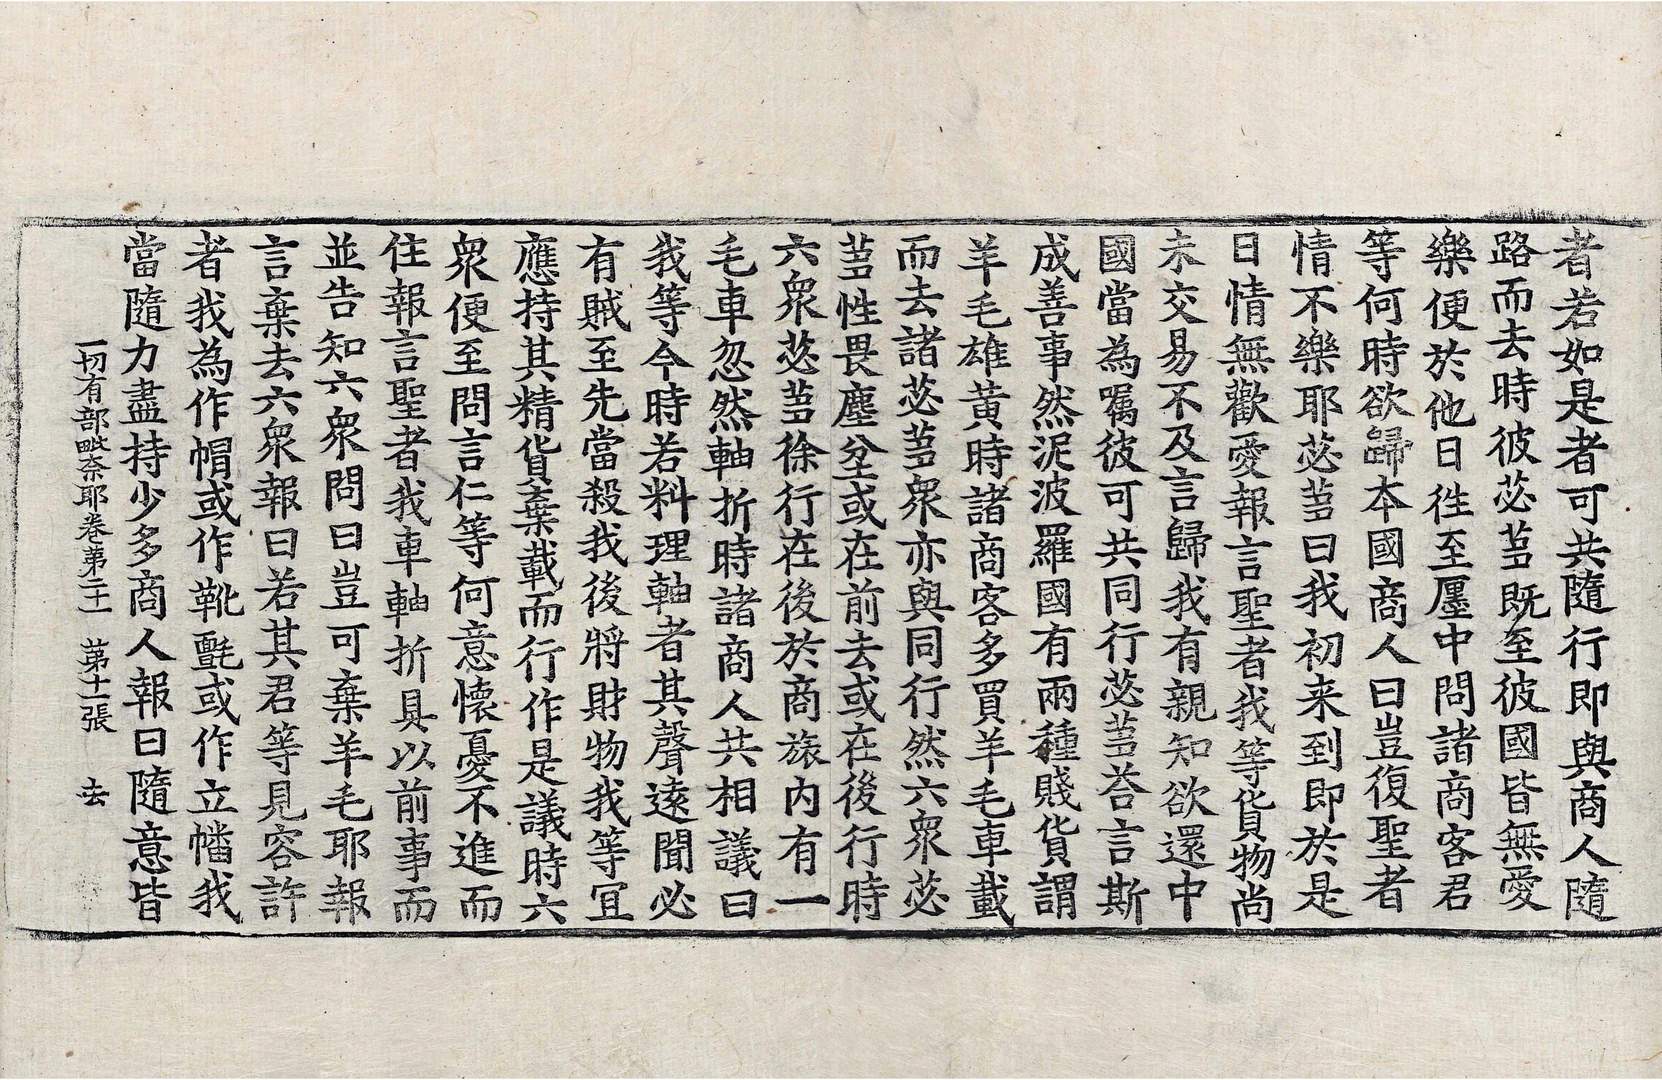 者若如是者可共隨行即與商人隨
路而去時彼苾芻既至彼國皆無愛
樂便於他日徃至廛中問諸商客君
等何時欲歸本國商人曰豈復聖者
情不樂耶苾芻曰我初来到即於是
日情無歡愛報言聖者我等貨物尚
未交易不及言歸我有親知欲還中
國當為囑彼可共同行苾芻荅言斯
成善事然泥波羅國有兩種賤貨謂
羊毛雄黃時諸商客多買羊毛車載
而去諸苾芻衆亦與同行然六衆苾
芻性畏塵坌或在前去或在後行時
六衆苾芻徐行在後於商旅内有一
毛車忽然軸折時諸商人共相議曰
我等今時若料理軸者其聲遠聞必
有賊至先當殺我後將財物我等宜
應持其精貨棄載而行作是議時六
衆便至問言仁等何意懷憂不進而
住報言聖者我車軸折具以前事而
並告知六衆問曰豈可棄羊毛耶報
言棄去六衆報曰若其君等見容許
者我為作帽或作靴氈或作立幡我
當隨力盡持少多商人報曰隨意皆
一切有部毗奈耶卷苐二十一 苐十一張 去